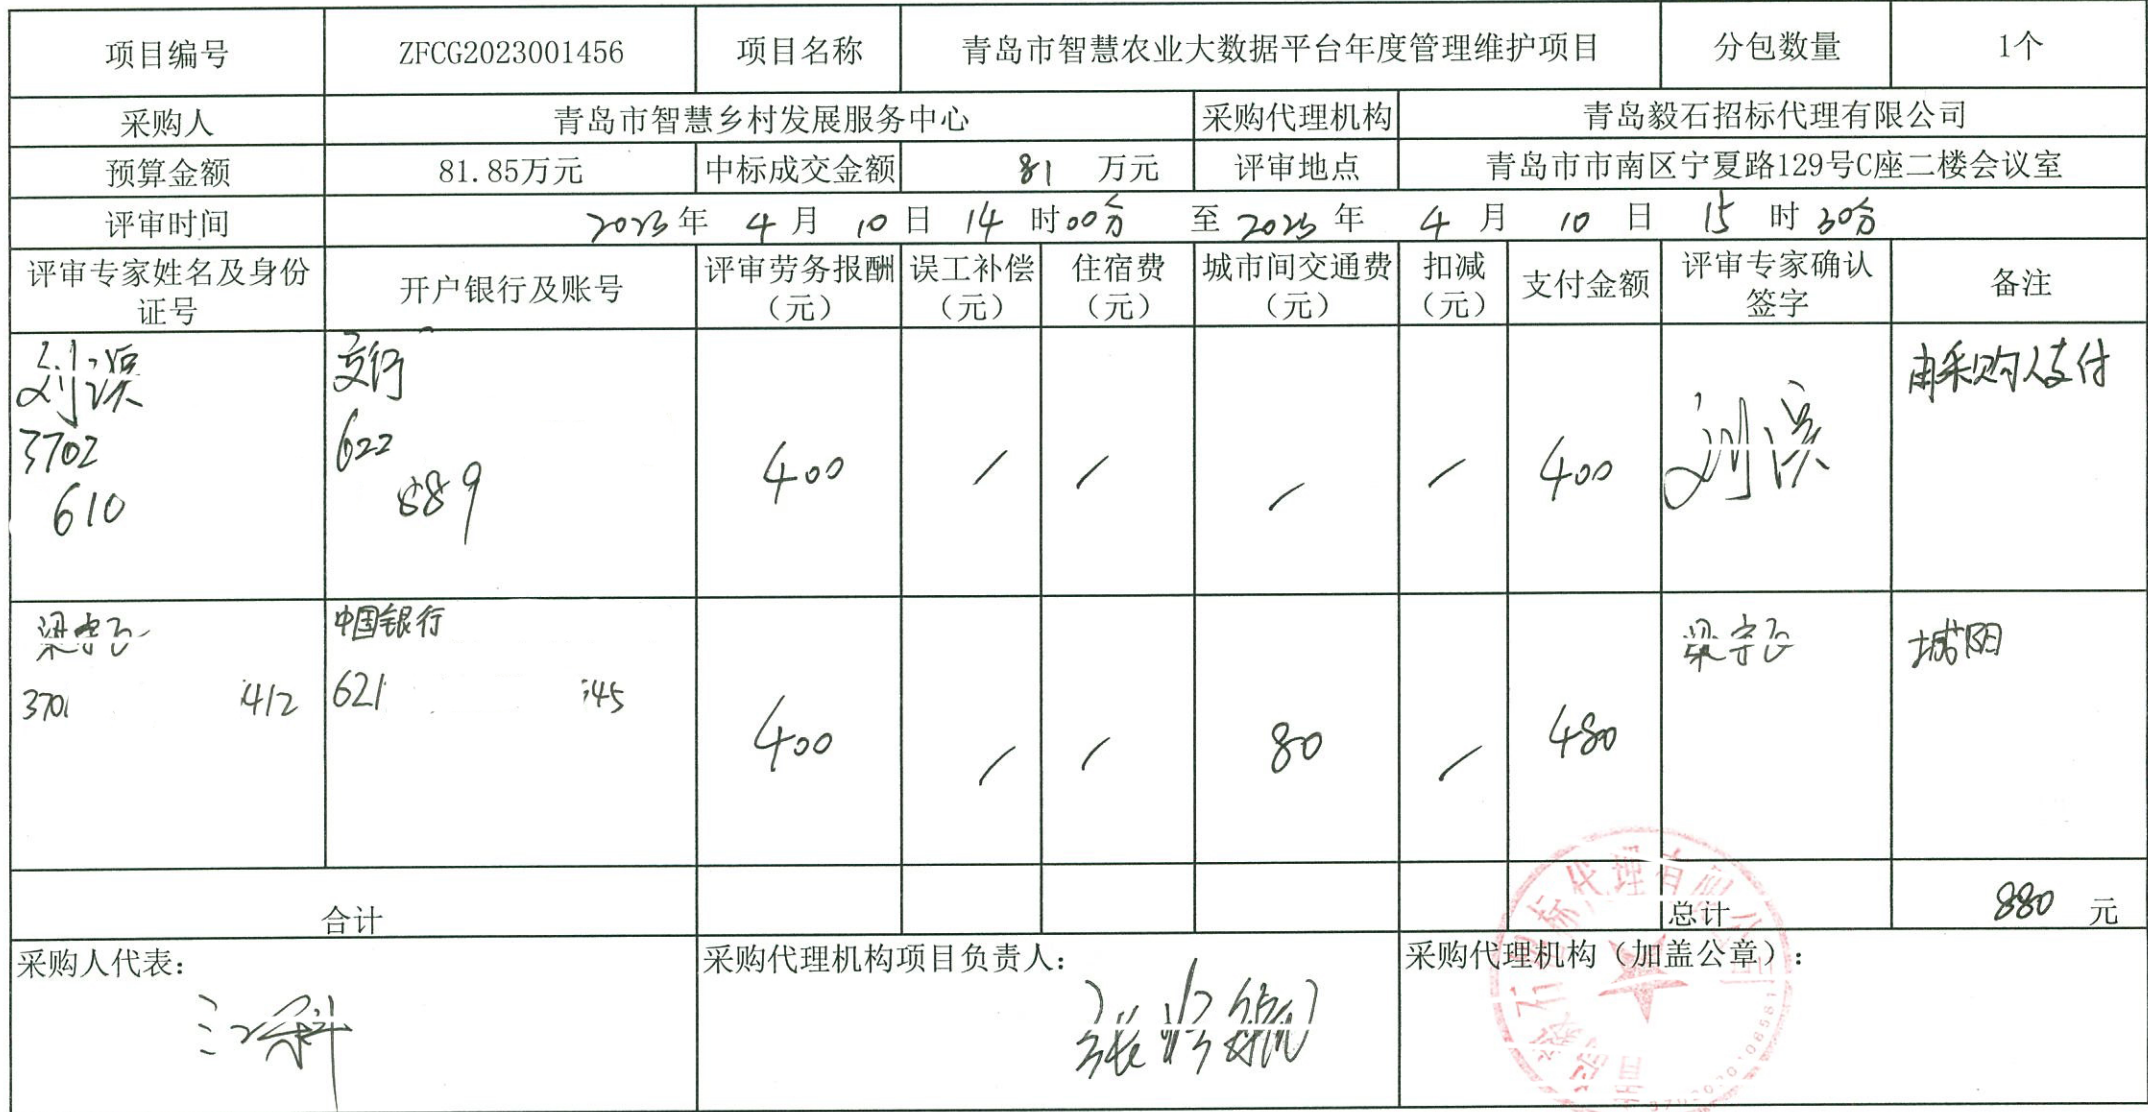 项目编号 ZFCG2023001456 项目名称 青岛市智慧农业大数据平台年度管理维护项目 分包数量 1个
采购人 青岛市智慧乡村发展服务中心 采购代理机构 青岛毅石招标代理有限公司
预算金额 81.85万元 中标成交金额 81 万元 评审地点 青岛市市南区宁夏路129号C座二楼会议室
评审时间 2023年 4月 10日 14时00分 至 2023年 4月 10日 15时30分
评审专家姓名及身份
证号
开户银行及账号
评审劳务报酬
（元）
误工补偿
（元）
住宿费
（元）
城市间交通费
（元）
扣减
（元）
支付金额
评审专家确认
签字
备注
刘滨
3702
610
交行
622
889
400 / / / / 400
刘滨
由采购人支付
3701 412
中国银行
621 45
400 / / 80 / 480
城阳
合计 总计 880 元
采购人代表：
采购代理机构项目负责人：
采购代理机构（加盖公章）：
青岛毅石招标代理有限公司